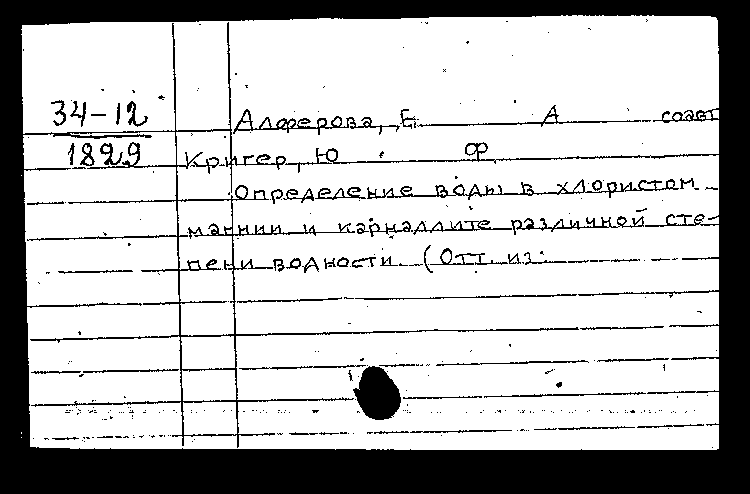 34-12
1829
Алферова, Е. А соавт
Кригер, Ю. Ф
Определение воды в хлористом
магнии и карналлите различной сте-
пени водности. (Отт. из: